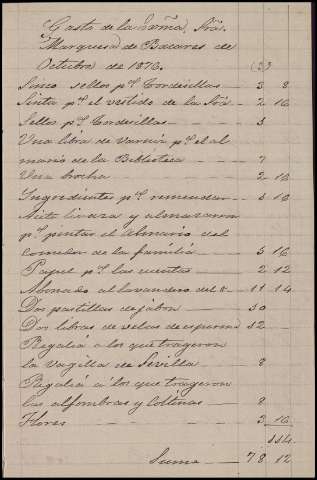 Gasto de la Exma. Sra.
Marquesa de Bacares de
Octubre de 1876.
Sinco sellos pa. Tordesillas — 3 8
Sinta pa. el vestido de la Sra. — 2 16
Sellos pa. Tordesillas — 3
Una libra de varniz pa. el al
mario de la Biblioteca — 7
Una brocha — 2 16
Ingredientes pa. remendar — 3 10
Aeite linaza y almazarron
pa. pintar el almario del
comedor de la familia — 5 16
Papel pa. las cuentas — 2 12
Abonado al lavandero del 8 — 11 14
Dos pastillas de jabon — 30
Dos libras de velas de esperma 32
Regalia a los que trageron
la vagilla de Sevilla — 8
Regalia a los que trageron
las alfombras y Coltinas — 8
Flores — 3 16
114
Suma — 78 12